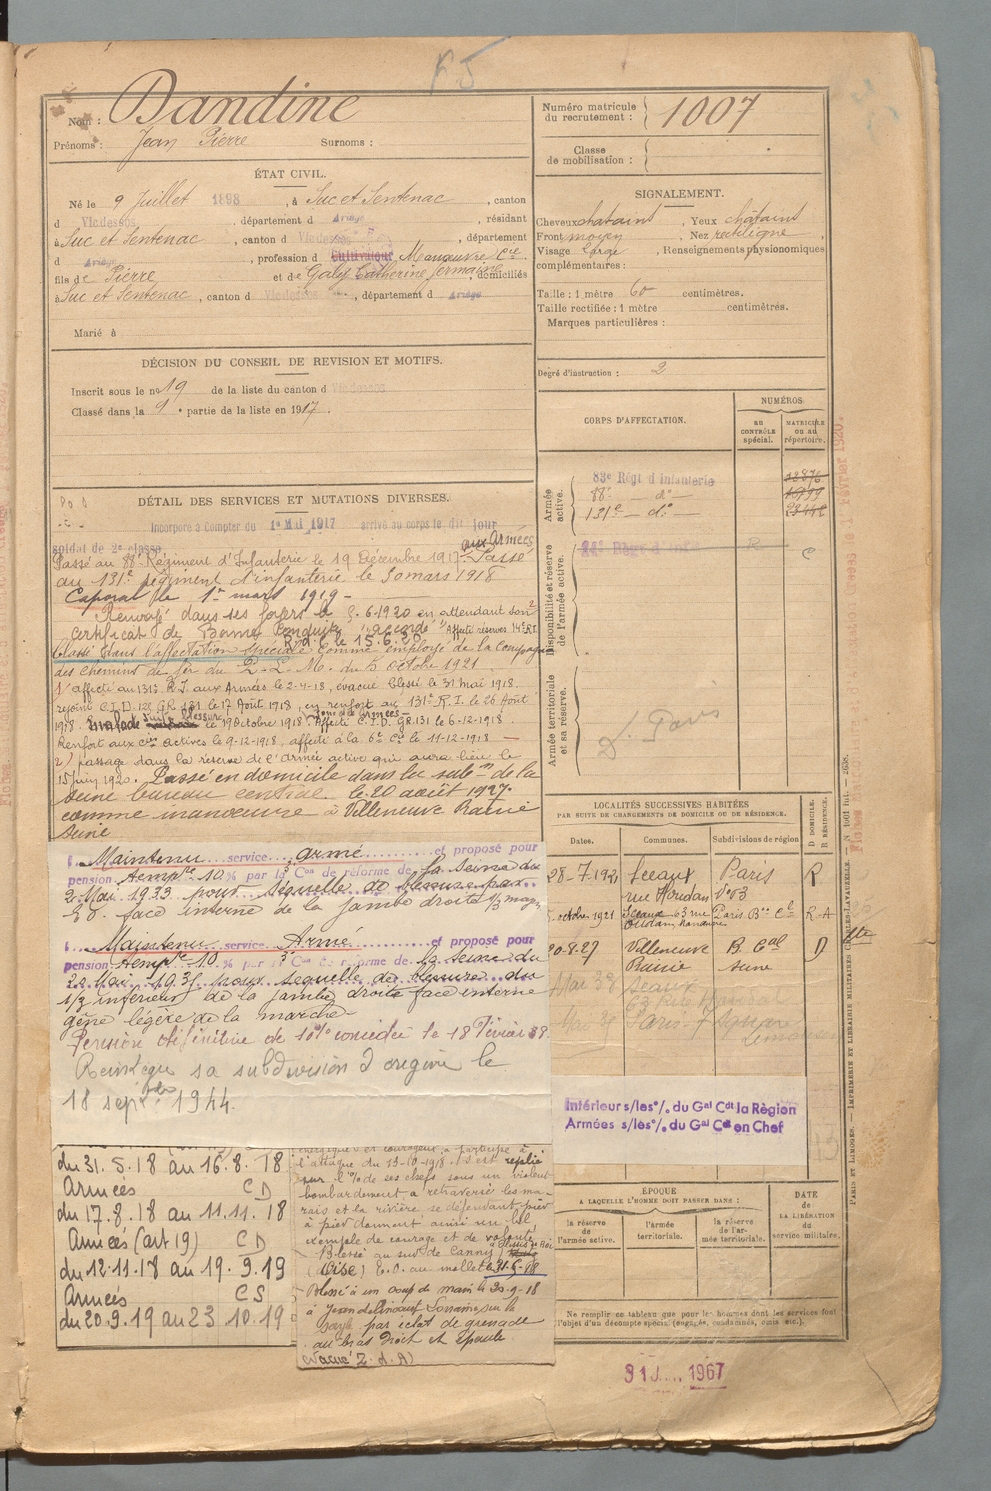 Nom : Dandine
Prénoms : Jean Pierre Surnoms :
Numéro matricule du recrutement : 1007
Classe de mobilisation :
ÉTAT CIVIL.
Né le 9 Juillet 1898, à Suc et Sentenac, canton
d Vicdessos, département d Ariège, résidant
à Suc et Sentenac, canton d Vicdessos, département
d Ariège, profession d Cultivateur Manœuvre Cie
fils de Pierre et de Galy Catherine Germaine, domiciliés
à Suc et Sentenac, canton d Vicdessos, département d Ariège
Marié à
SIGNALEMENT.
Cheveux chatains, Yeux châtains
Front moyen, Nez rectiligne,
Visage Large, Renseignements physionomiques
complémentaires :
Taille : 1 mètre 60 centimètres.
Taille rectifiée : 1 mètre centimètres.
Marques particulières :
Degré d'instruction : 2
DÉCISION DU CONSEIL DE REVISION ET MOTIFS.
Inscrit sous le no 19 de la liste du canton d Vicdessos
Classé dans la 9e partie de la liste en 1917.
DÉTAIL DES SERVICES ET MUTATIONS DIVERSES.
Incorporé à Compter du 1er Mai 1917 arrivé au corps le dit jour
soldat de 2e classe
Passé au 88e Régiment d'Infanterie le 19 Décembre 1917 aux Armées. Passé
au 131e régiment d'infanterie le 30 mars 1918
Caporal le 1er mars 1919 -
Renvoyé dans ses foyers le 6.1920 en attendant son
certificat de Bonne Conduite "accordé" Affecté réserves 14e R.I.
R.d.l. le 15.6.20
Classé dans l'affectation spéciale comme employé de la Compagnie
des chemins de fer du P-L-M. du 5 octobre 1921
1) affecté au 131e R.I. aux Armées le 2-4-18, évacué blessé le 31 mai 1918.
rejoint C.I.D. 125 GR 131 le 17 Août 1918, en renfort au 131e R.I. le 26 Août
1918. Evacué suite blessure zone des armées le 19 Octobre 1918. Affecté C.I.D. GR.131 le 6-12-1918.
Renfort aux cies actives le 9-12-1918, affecté à la 6e Cie le 11-12-1918 —
2) passage dans la réserve de l'armée active qui aura lieu le
15 juin 1920. Passé en domicile dans la subon de la
Seine bureau central le 20 août 1927
comme manœuvre à Villeneuve Rame
Seine
Maintenu service armé et proposé pour
pension temp.re 10% par la 3e Con de réforme de la Seine du
2 Mai 1933 pour séquelle de blessure par
E.O. face interne de la jambe droite 1/3 moyen
Maintenu service Armé et proposé pour
pension temp.re 10 % par la 3e Con de réforme de la Seine du
22 Mai 1935 pour sequelle de blessure du
1/3 inférieur de la jambe droite face interne
gêne légère de la marche-
Pension définitive de 10% concédée le 18 Février 38.
Reintègre sa subdivision d'origine le
18 septbre 1944.
du 31.5.18 au 16.8.18
Armées CD
du 17.8.18 au 11.11.18
Armées (art 19) CD
du 12.11.18 au 19.9.19
Armées CS
du 20.9.19 au 23.10.19
énergique et courageux, a participé à
l'attaque du 13-10-1918. S'est replié
sur l'% de ses chefs sous un violent
bombardement, a retraversé les ma-
rais et la rivière, se défendant pied
à pied donnant ainsi un bel
exemple de courage et de volonté
Blessé au sud de Canny
(Oise) E.O. au mollet le 31-5-18
Blessé à un coup de main le 30-9-18
à Lorraine, sur la
par éclat de grenade
au bras droit et épaule.
évacué Z.d.A)
CORPS D'AFFECTATION.
NUMÉROS
au contrôle spécial.
matricule ou au répertoire.
Armée active.
83e Régt d'Infanterie
88e — do —
131e — do —
Disponibilité et réserve de l'armée active.
14e Régt d'Inf R C
Armée territoriale et sa réserve.
Paris
LOCALITÉS SUCCESSIVES HABITÉES
PAR SUITE DE CHANGEMENTS DE DOMICILE OU DE RÉSIDENCE.
Dates. Communes. Subdivisions de région
D DOMICILE. R RÉSIDENCE.
28-7-1921 Sceaux Paris R
rue Houdan No 63
5 octobre 1921 Sceaux 63 rue Houdan Paris Bau Cal R-A
20-8-27 Villeneuve B Cal D
Rame Seine
Mai 38 Sceaux
63 Rue Houdan
Paris-7 Square
Intérieur s/les o/. du Gal Cdt la Région
Armées s/les o/. du Gal Cdt en Chef
ÉPOQUE
A LAQUELLE L'HOMME DOIT PASSER DANS :
la réserve de l'armée active.
l'armée territoriale.
la réserve de l'armée territoriale.
DATE de la LIBÉRATION du service militaire.
Ne remplir ce tableau que pour les hommes dont les services font
l'objet d'un décompte spécial (engagés, condamnés, omis etc.).
PARIS ET LIMOGES. — IMPRIMERIE ET LIBRAIRIE MILITAIRES CHARLES-LAVAUZELLE
1967